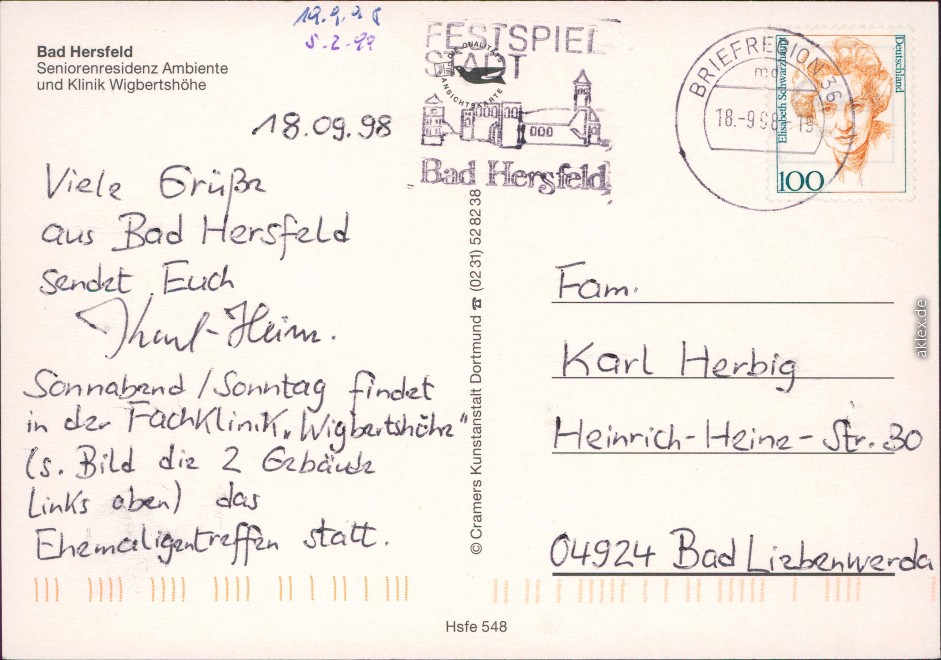 19.9.98
5.2.99
Bad Hersfeld
Seniorenresidenz Ambiente
und Klinik Wigbertshöhe
18.09.98
Viele Grüße
aus Bad Hersfeld
sendet Euch
Karl-Heinz.
Sonnabend/Sonntag findet
in der Fachklinik „Wigbertshöhe"
(s. Bild die 2 Gebäude
links oben) das
Ehemaligentreffen statt.
FESTSPIEL
STADT
QUALITÄTS
ANSICHTSKARTE
Bad Hersfeld
BRIEFREGION 36
18.-9.98-19
Deutschland
Elisabeth Schwarzhaupt
100
© Cramers Kunstanstalt Dortmund ☎ (0231) 528238
Fam.
Karl Herbig
Heinrich-Heine-Str. 30
04924 Bad Liebenwerda
Hsfe 548
aklex.de